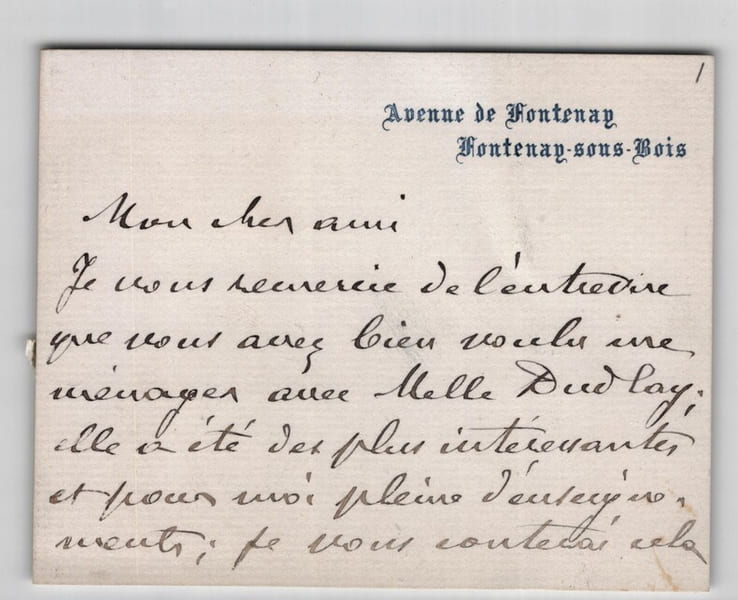 1
Avenue de Fontenay
Fontenay-sous-Bois
Mon cher ami
Je vous remercie de l'entrevue
que vous avez bien voulu me
ménager avec Melle Dudlay;
elle a été des plus intéressantes
et pour moi pleine d'enseigne-
ments; je vous conterai cela